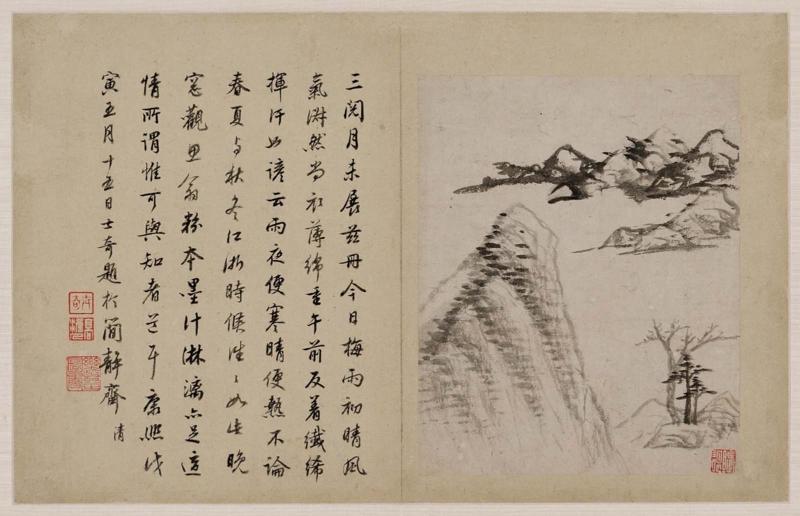 三閱月未展茲冊今日梅雨初晴風
氣然尚衣薄綿重午前反着纖絺
揮汗如諺云雨夜便寒晴便熱不論
春夏与秋冬江浙時候往〻如此晚
窓觀思翁粉本墨汁淋漓亦足遣
情所謂惟可與知者道耳康熙戊
寅五月十五日士奇題於簡靜齋
清